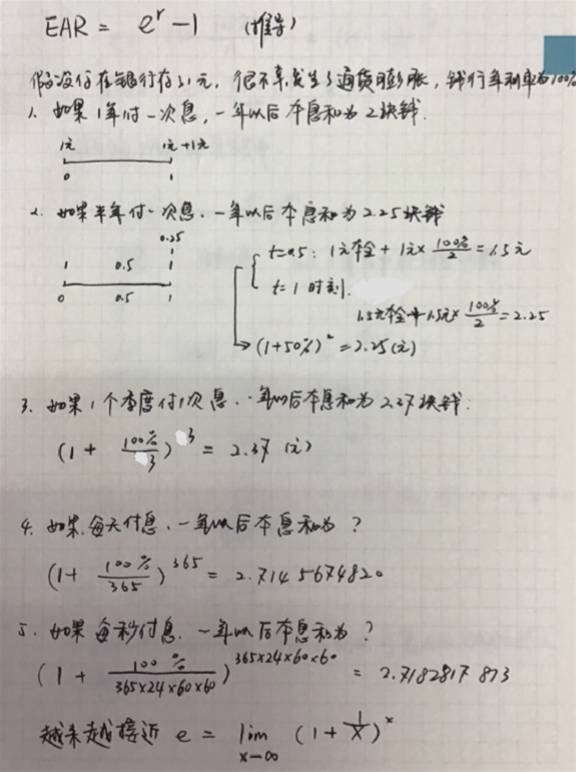 EAR = e^r - 1 (推导)
假设你在银行存了1元, 很不幸发生了通货膨胀, 银行年利率为100%
1. 如果1年付一次息, 一年以后本息和为2块钱.
1元 1元+1元
0 1
2. 如果半年付一次息. 一年以后本息和为2.25块钱
0.25
1 0.5 1
0 0.5 1
t=0.5: 1元本金 + 1元× 100%/2 = 1.5元
t=1时刻.
1.5元本金+1.5元× 100%/2 = 2.25
(1+50%)^2 = 2.25(元)
3. 如果1个季度付1次息. 一年以后本息和为2.37块钱.
(1 + 100%/3)^3 = 2.37 (元)
4. 如果每天付息. 一年以后本息和为?
(1+ 100%/365)^365 = 2.7145674820
5. 如果每秒付息. 一年以后本息和为?
(1 + 100%/365×24×60×60)^365×24×60×60 = 2.7182817813
越来越接近 e = lim x→∞ (1+1/x)^x